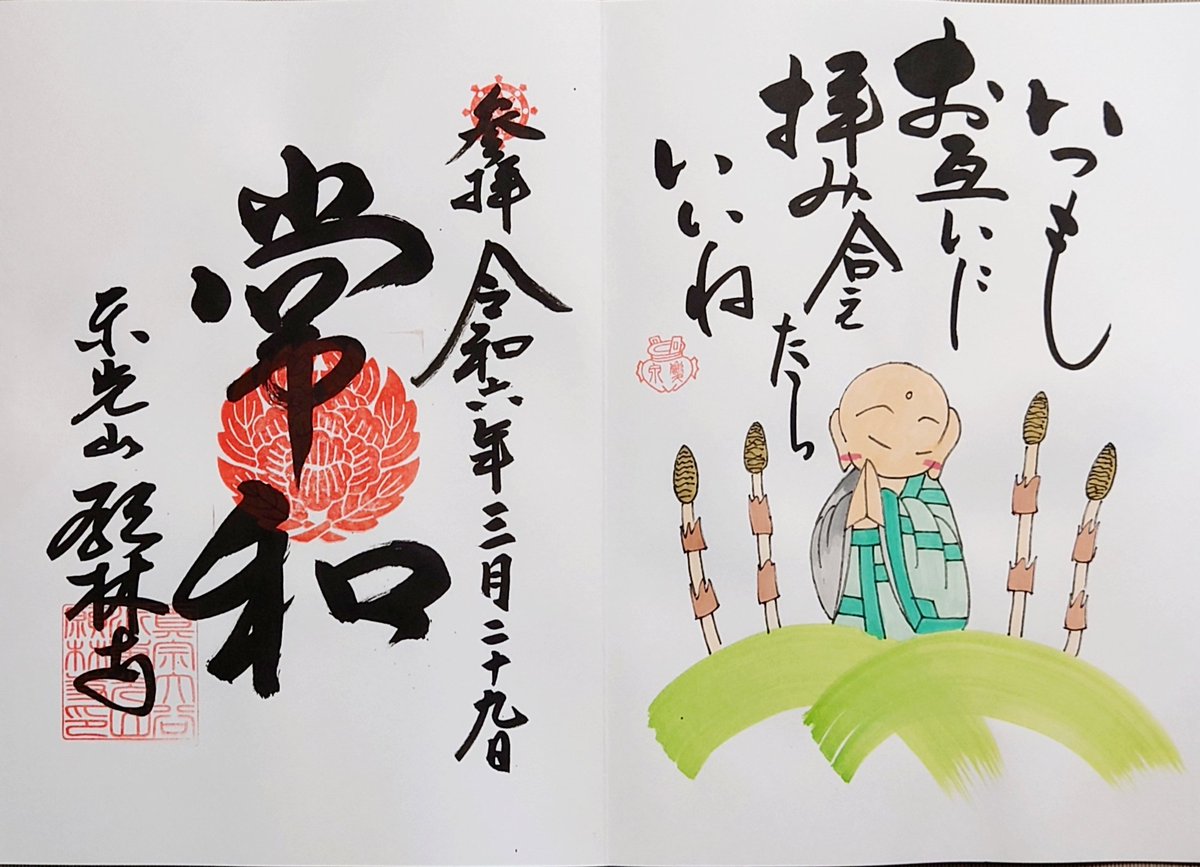 いつもし
お互いに
拝み合え
たら
いいね
参拝 令和六年三月二十九日
常和